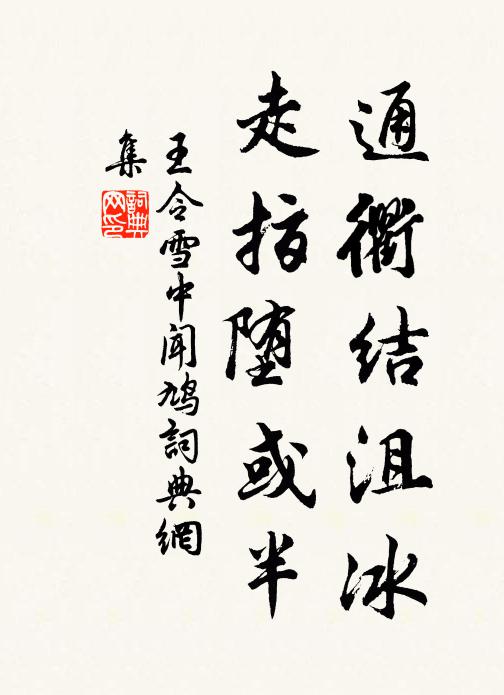 通衢结沮冰
走指堕或半
王令雪中闻鸠词典網
集
詞典网印